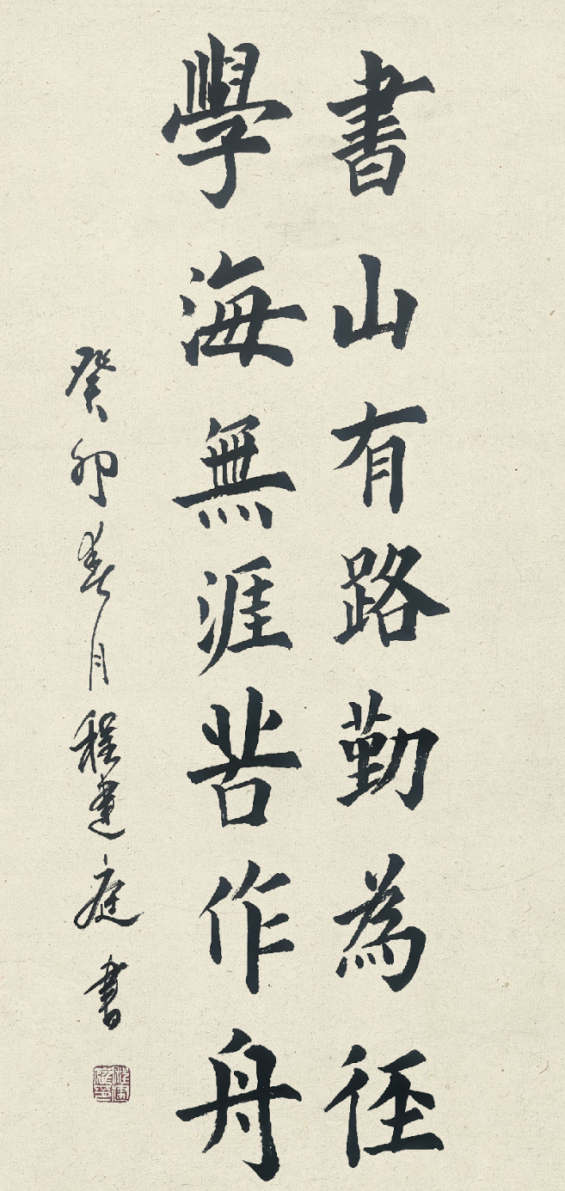 書山有路勤為徑
學海無涯苦作舟
癸卯春月程建庭書